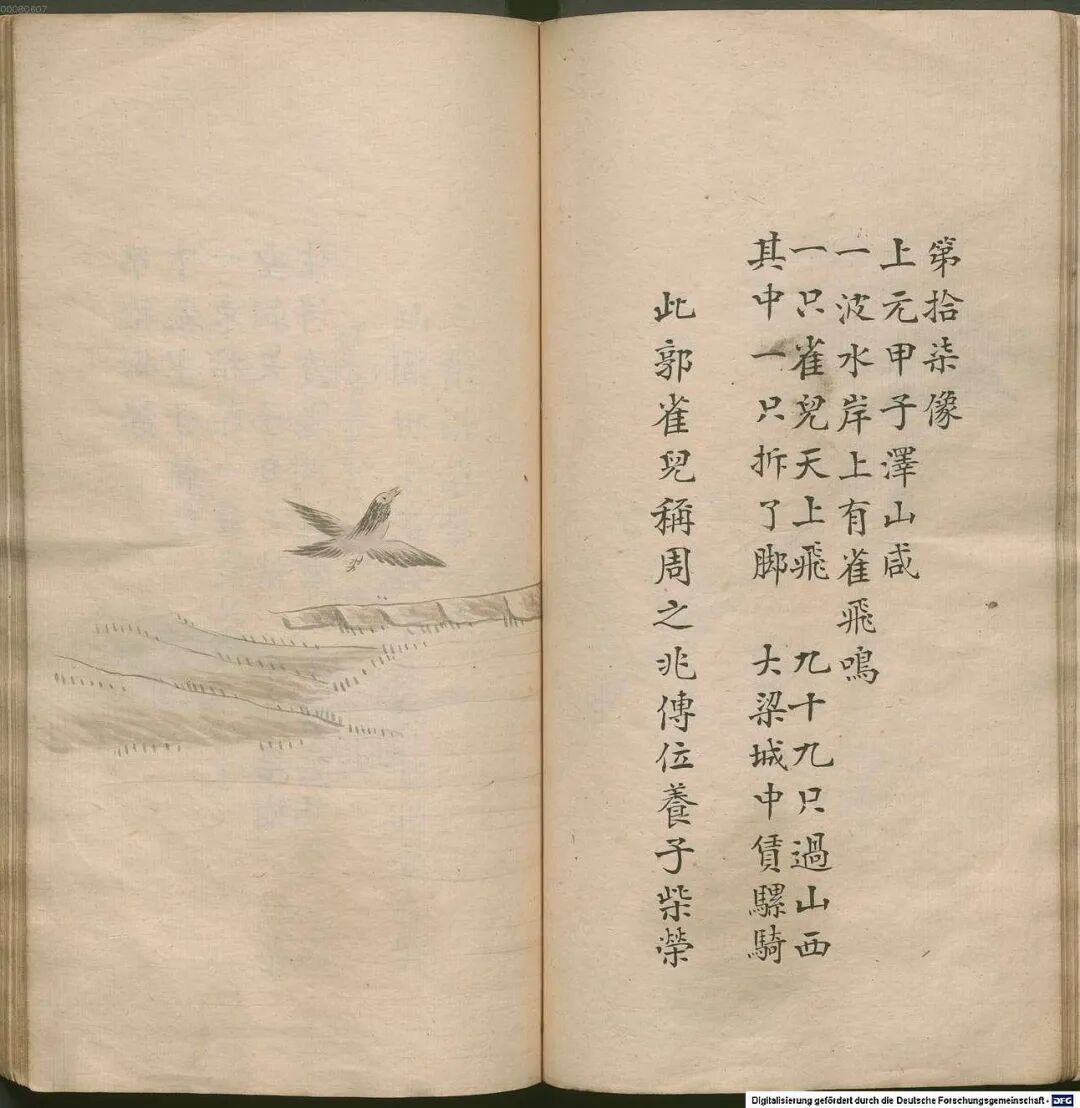 00080607
第拾柒像
上元甲子澤山咸
一波水岸上有雀飛鳴
一只雀兒天上飛 九十九只過山西
其中一只拆了脚 大梁城中賃騾騎
此郭雀兒稱周之兆傳位養子柴榮
Digitalisierung gefördert durch die Deutsche Forschungsgemeinschaft - DFG